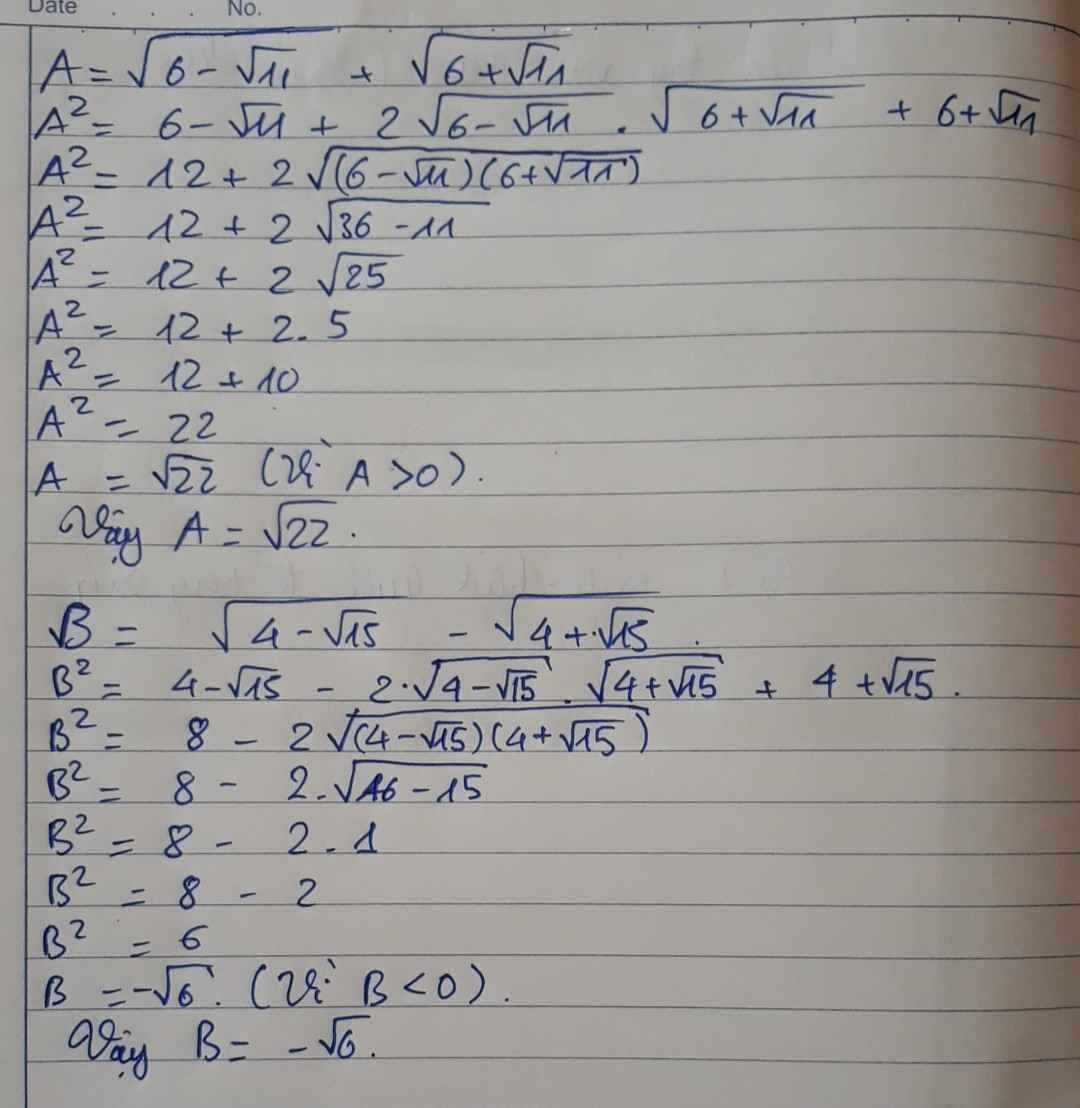 Date . . . No.
A = √(6 - √11) + √(6 + √11)
A² = 6 - √11 + 2√(6 - √11) . √(6 + √11) + 6 + √11
A² = 12 + 2√((6 - √11)(6 + √11))
A² = 12 + 2√(36 - 11)
A² = 12 + 2√25
A² = 12 + 2. 5
A² = 12 + 10
A² = 22
A = √22 (Vì A > 0).
Vậy A = √22.
B = √(4 - √15) - √(4 + √15).
B² = 4 - √15 - 2.√(4 - √15) . √(4 + √15) + 4 + √15.
B² = 8 - 2√((4 - √15)(4 + √15))
B² = 8 - 2.√(16 - 15)
B² = 8 - 2. 1
B² = 8 - 2
B² = 6
B = -√6. (Vì B < 0).
Vậy B = -√6.